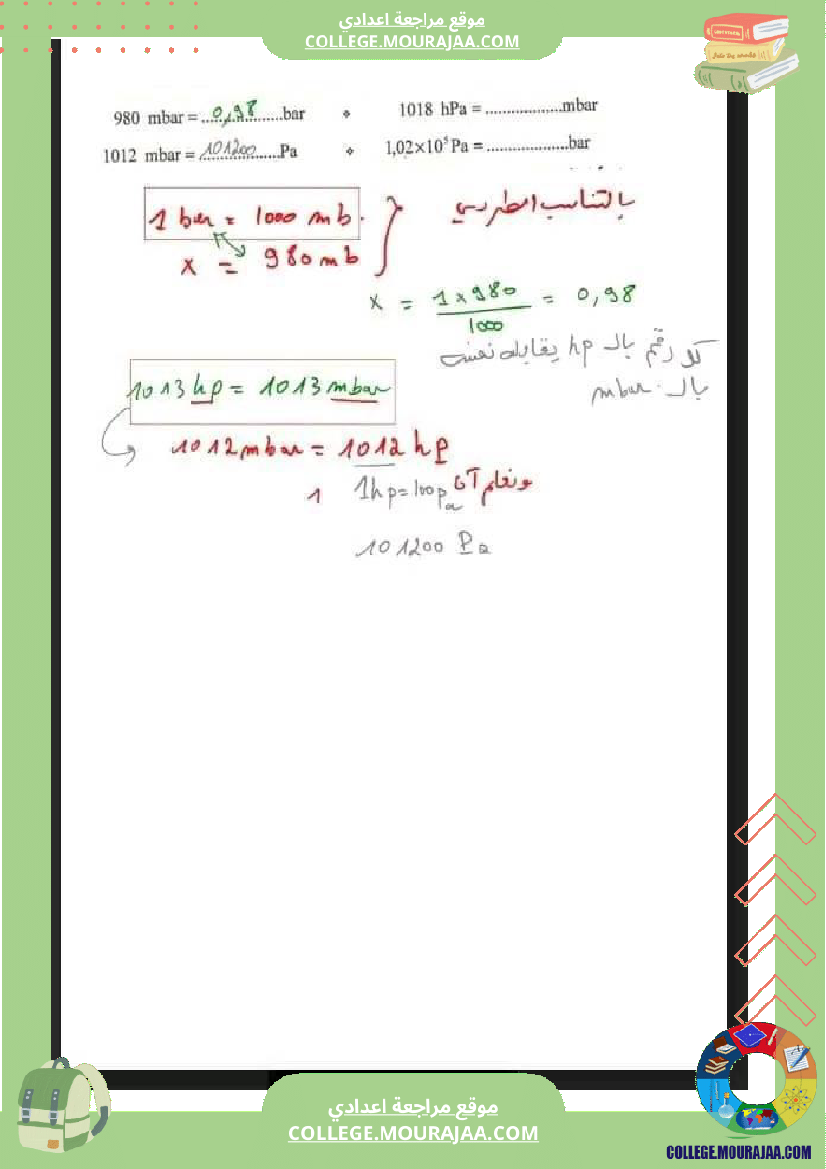 موقع مراجعة اعدادي
COLLEGE.MOURAJAA.COM
980 mbar = ...0,98...bar ❖ 1018 hPa = ...................mbar
1012 mbar = ...101200...Pa ❖ 1,02×10⁵ Pa = ....................bar
1 bar = 1000 mb. بالتناسب الطردي
x = 980 mb
x = 1 x 980 / 1000 = 0,98
كل رقم بالـ hp يقابله نفسه
بالـ mbar
1013 hp = 1013 mbar
1012 mbar = 1012 hp
1 1hp = 100 pa ونعلم أن
101200 Pa
موقع مراجعة اعدادي
COLLEGE.MOURAJAA.COM
COLLEGE.MOURAJAA.COM